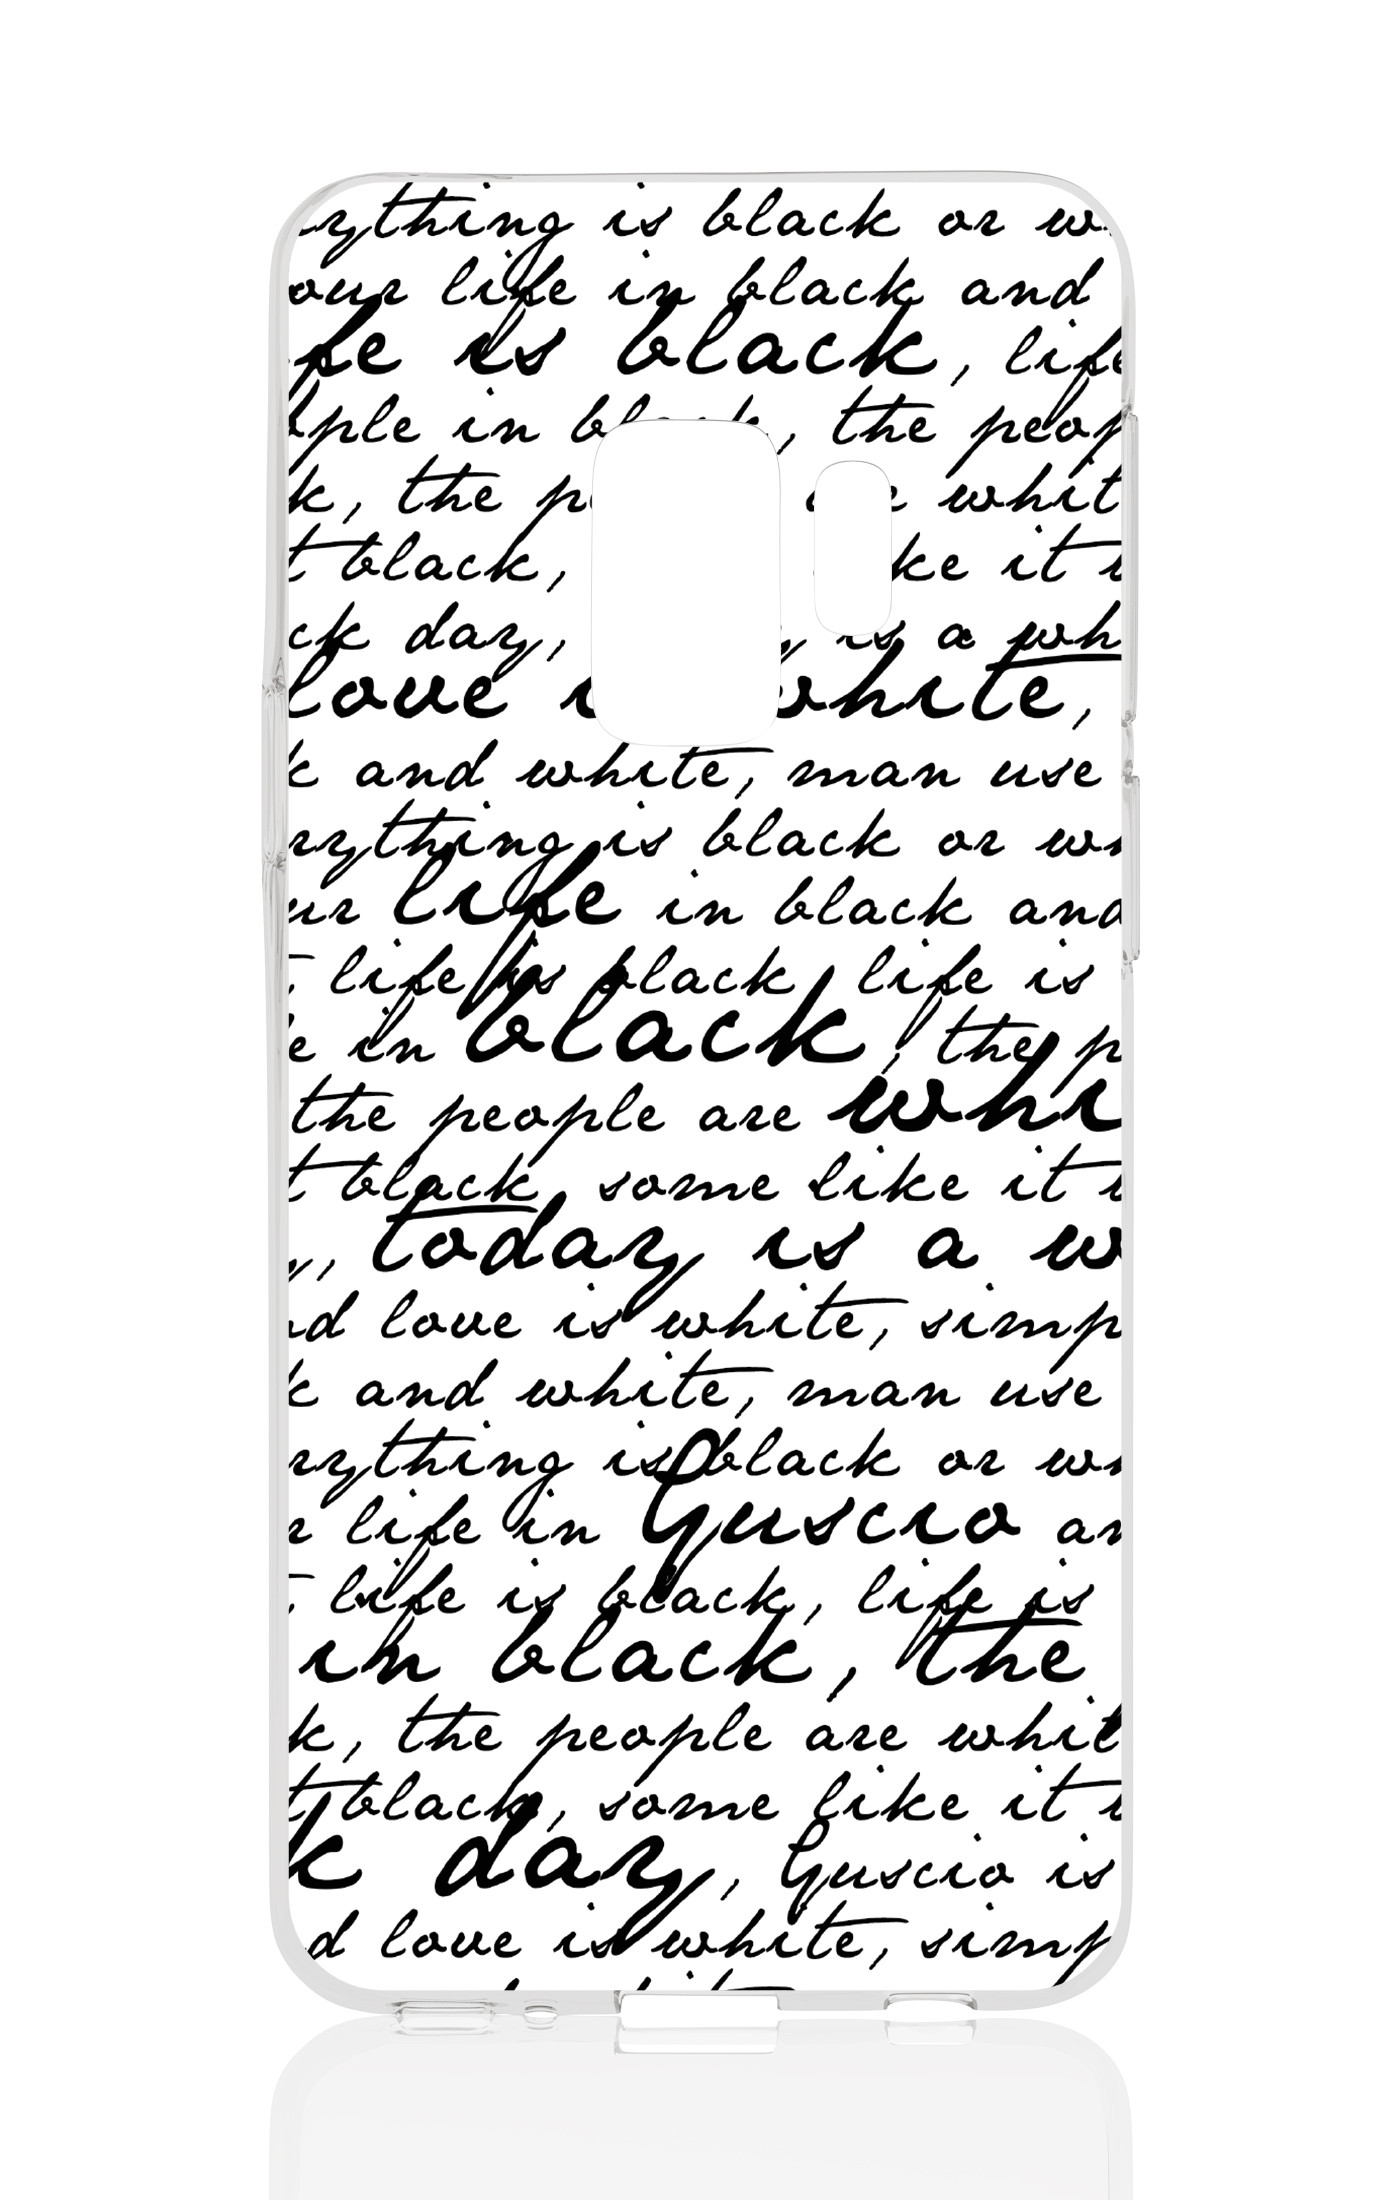 rything is black or w
our life in black and
fe is black, life
ople in black, the peop
k, the p e whit
t black, ke it
ck day, y is a wh
love i white,
k and white, man use
rything is black or w
ur life in black and
t life is black life is
e in black, the p
the people are whi
t black, some like it
y, today is a w
nd love is white, simp
k and white, man use
rything is black or w
r life in Guscio an
t life is black, life is
in black, the
k, the people are whit
t black, some like it
k day, Guscio is
d love is white, simp